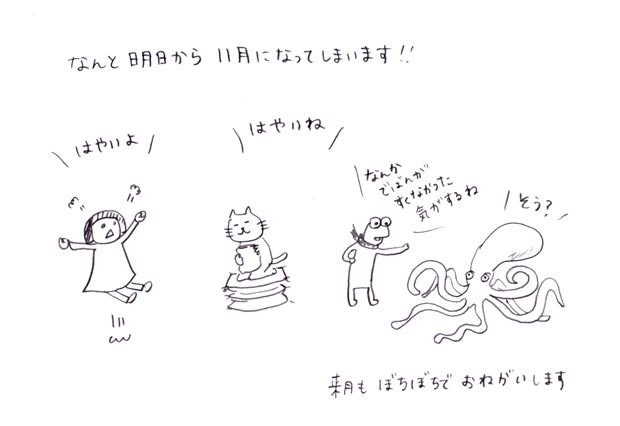 なんと明日から11月になってしまいます!!
はやいよ
はやいね
なんか
でばんが
すくなかった
気がするね
そう?
来月もぼちぼちでおねがいします